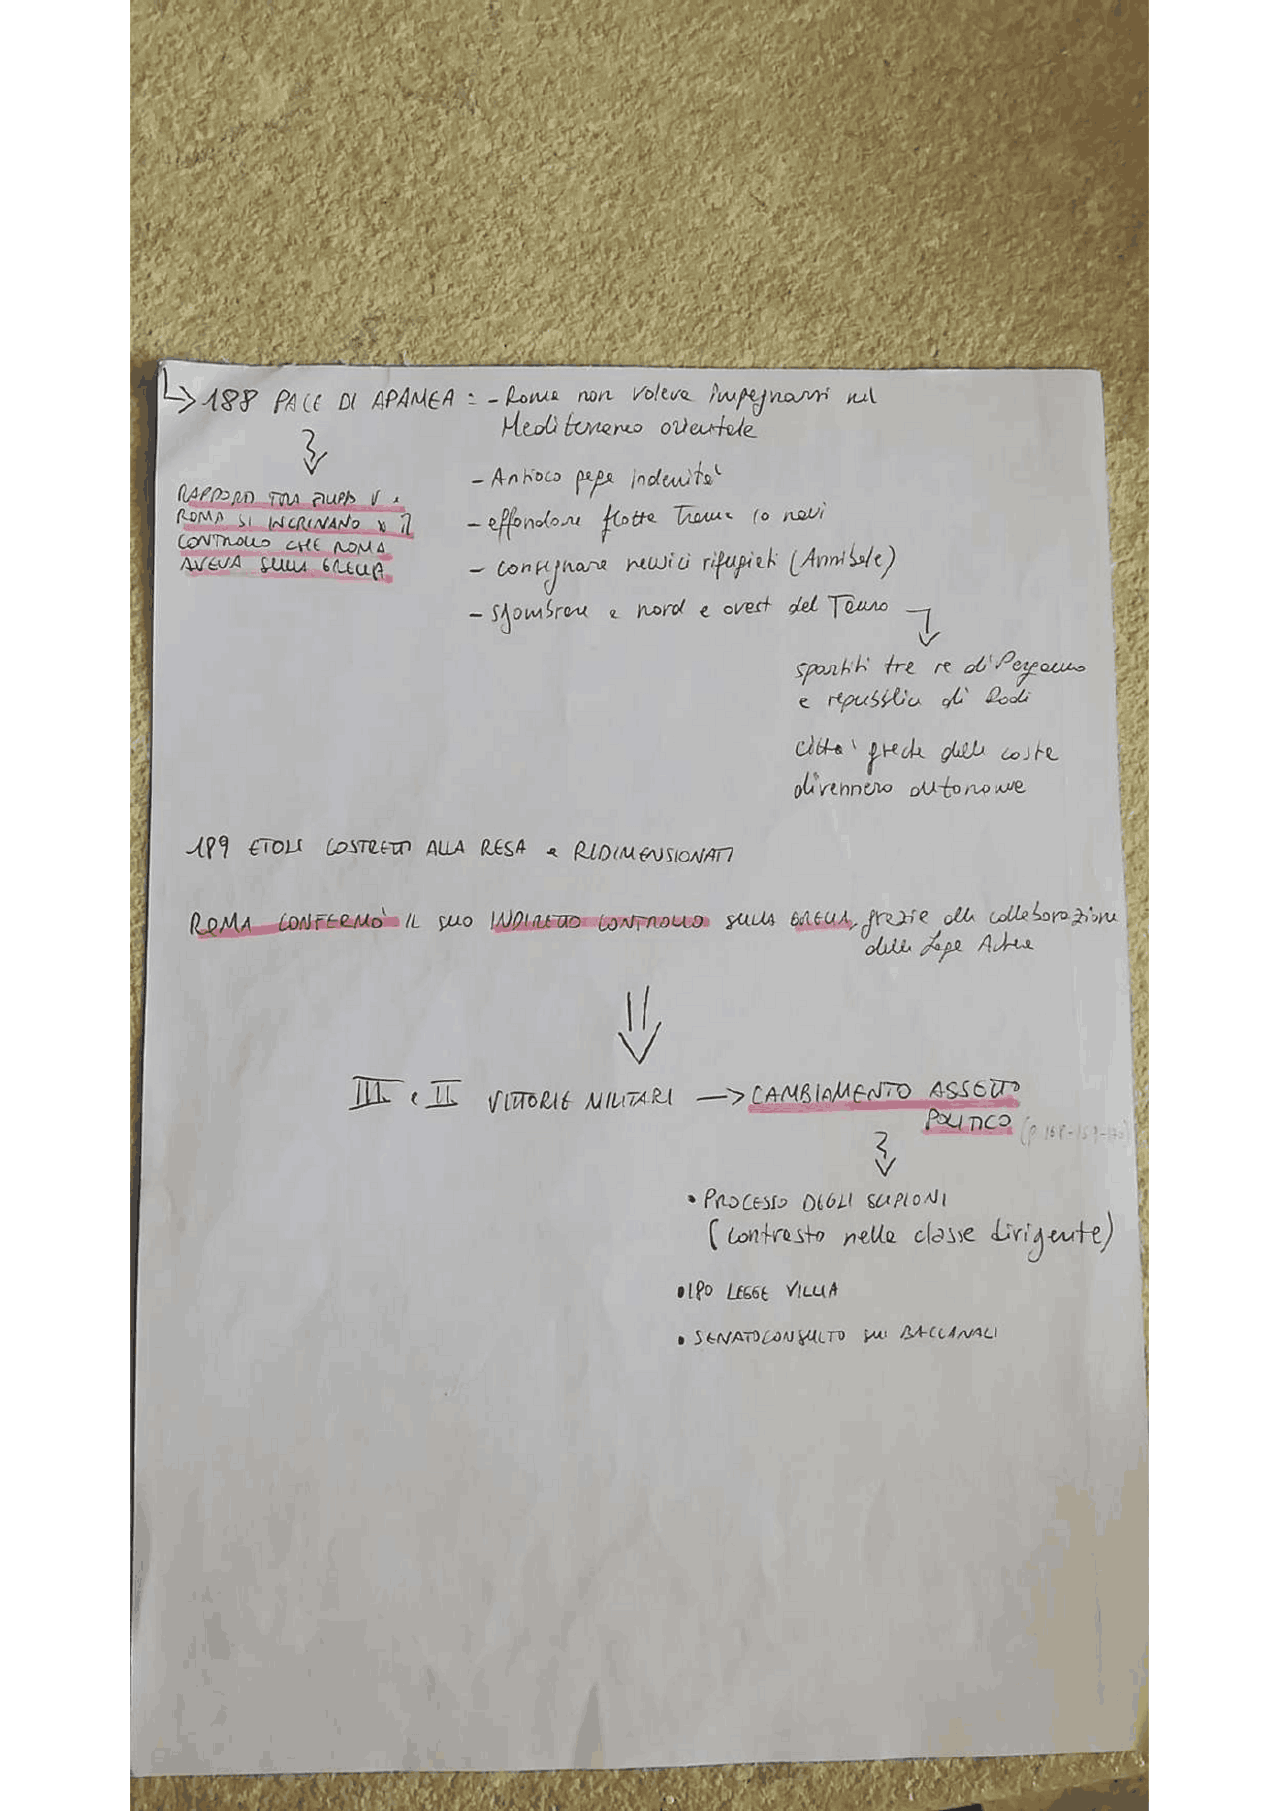 188 PACE DI APAMEA : - Roma non voleva impegnarsi nel
Mediterraneo orientale
- Antioco paga indennità
- affondare flotta tranne 10 navi
- consegnare nemici rifugiati (Annibale)
- sgombrare a nord e ovest del Tauro
RAPPORTI TRA FILIPPO V e
ROMA SI INCRINANO x il
CONTROLLO CHE ROMA
AVEVA SULLA GRECIA
spartiti tra re di Pergamo
e repubblica di Rodi
città greche delle coste
divennero autonome
189 ETOLI COSTRETTI ALLA RESA e RIDIMENSIONATI
ROMA CONFERMO' IL SUO INDIRETTO CONTROLLO SULLA GRECIA, grazie alla collaborazione
della Lega Achea
III e II VITTORIE MILITARI -> CAMBIAMENTO ASSETTO
POLITICO
• PROCESSO DEGLI SCIPIONI
(contrasto nella classe dirigente)
• 180 LEGGE VILLIA
• SENATOCONSULTO sui BACCANALI